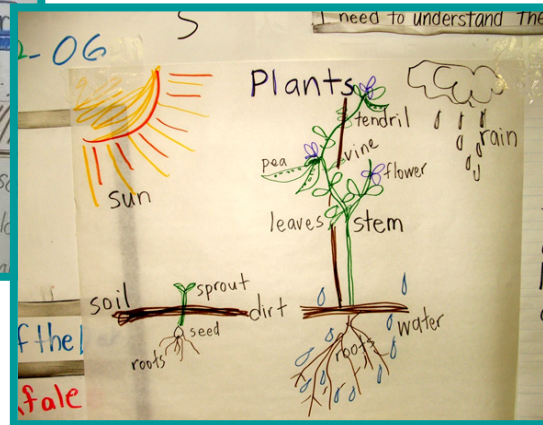 I need to understand The
-06
Plants
tendril
rain
vine
pea
flower
sun
leaves
stem
soil
sprout
dirt
seed
water
roots
roots
f the
fale